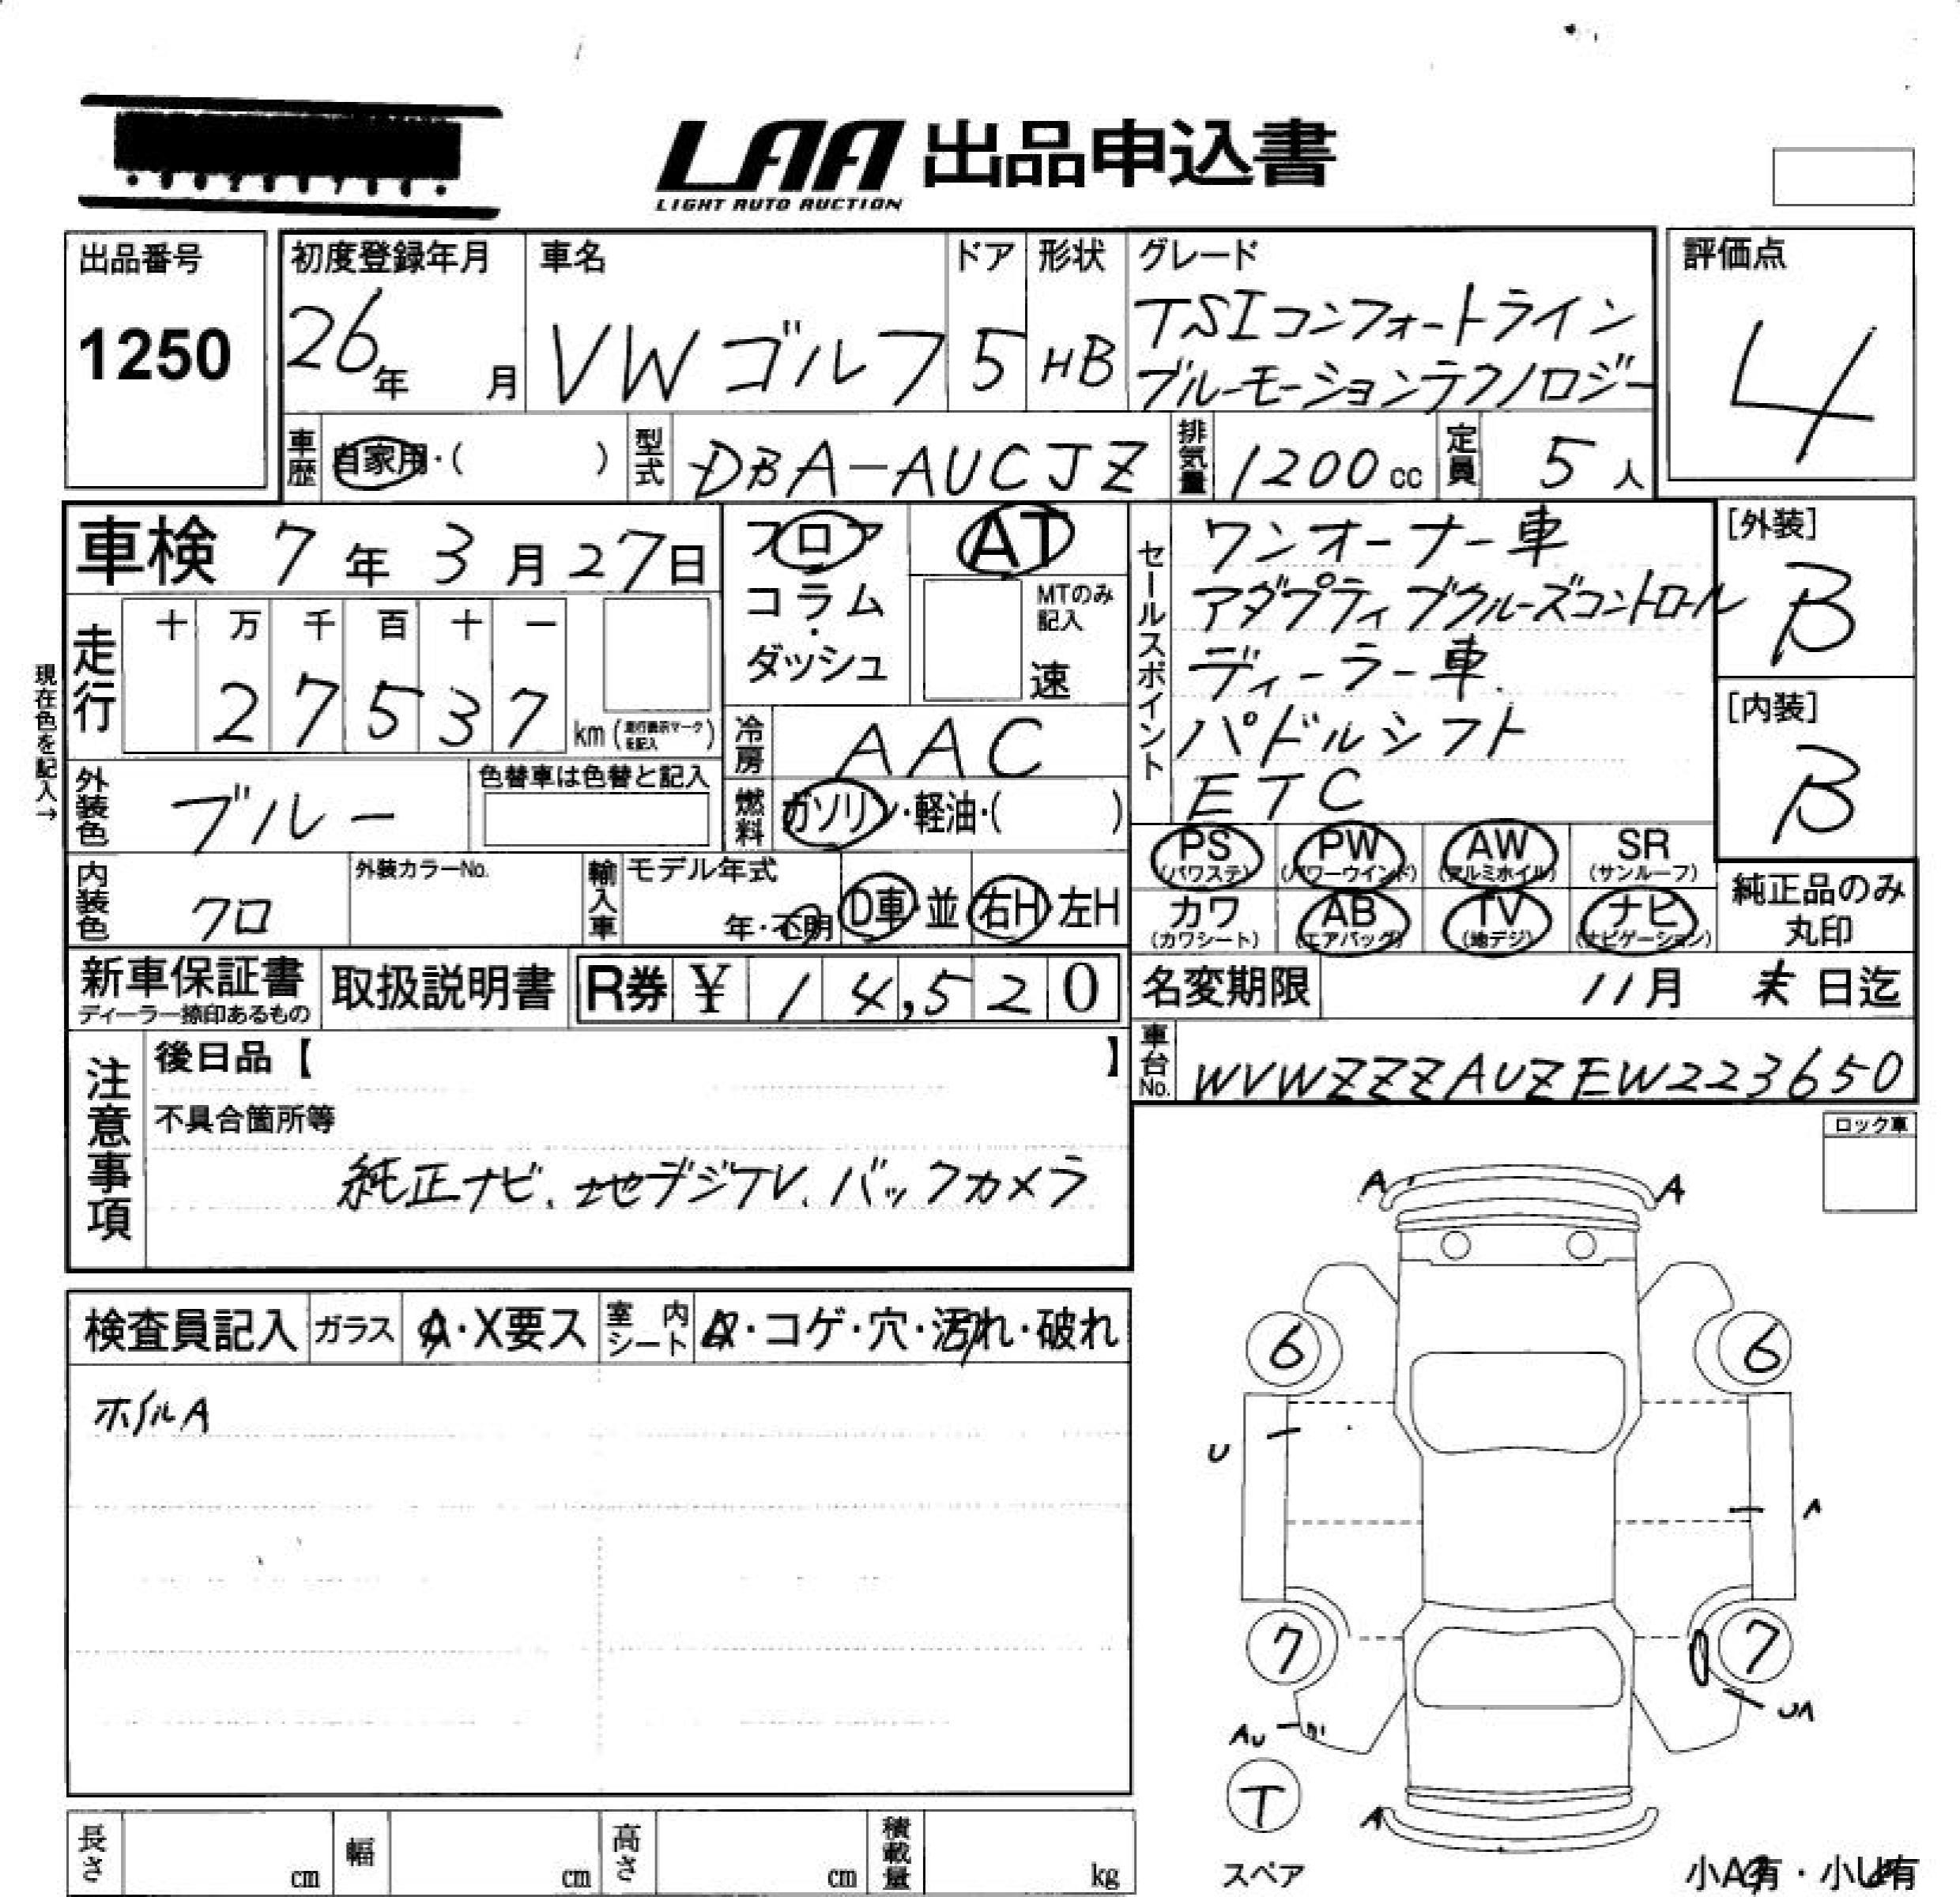 LAA 出品申込書
LIGHT AUTO AUCTION
出品番号
1250
初度登録年月
26年 月
車名
VW ゴルフ
ドア
5
形状
HB
グレード
TSIコンフォートライン
ブルーモーションテクノロジー
評価点
4
車歴 自家用・( )
型式 DBA-AUCJZ
排気量 1200 cc
定員 5 人
車検 7年 3月 27日
走行
十 万 千 百 十 一
2 7 5 3 7 km (走行表示マークを記入)
現在色を記入→
外装色 ブルー
色替車は色替と記入
内装色 クロ
外装カラーNo.
フロア
コラム・
ダッシュ
AT
MTのみ
記入
速
冷房 AAC
燃料 ガソリン・軽油・( )
輸入車 モデル年式
年・不明 D車・並 右H・左H
セールスポイント
ワンオーナー車
アダプティブクルーズコントロール
ディーラー車
パドルシフト
ETC
[外装]
B
[内装]
B
PS (パワステ) PW (パワーウインド) AW (アルミホイル) SR (サンルーフ)
カワ (カワシート) AB (エアバッグ) TV (地デジ) ナビ (ナビゲーション)
純正品のみ
丸印
新車保証書
ディーラー捺印あるもの
取扱説明書
R券 ¥ 1 4,5 2 0
名変期限 11月 末日迄
車台No. WVWZZZAUZEW223650
注意事項
後日品【 】
不具合箇所等
純正ナビ、地デジTV、バックカメラ
ロック車
検査員記入 ガラス A・X要ス 室内シート A・コゲ・穴・汚れ・破れ
ホイルA
A A
6 6
U
A
7 7
AU
UA
T
スペア
A
小A有・小U有
長さ cm 幅 cm 高さ cm 積載量 kg